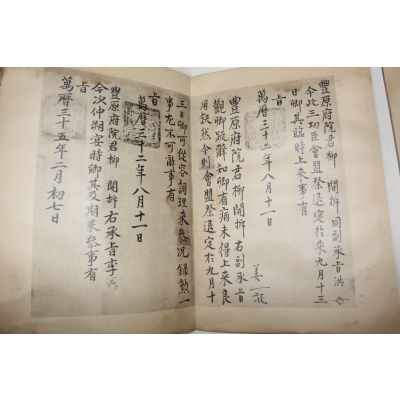 豐原府院君柳 開拆 同副承旨洪
今此三功臣會盟祭退定於來九月十三
日卿其臨時上來事有
旨
萬曆三十二年八月十一日
豐原府院君柳 開拆 右副承旨姜
觀卿疏辭知卿有病未得上來良
用缺然今則會盟祭退定於九月十
三日卿可從容調理來參況錄勲一
事尤不可辭事有
旨
萬曆三十二年八月十一日
豐原府院君柳 開拆 右承旨李
今次仲朔宴時卿其及期來參事有
旨
萬曆三十五年二月初七日